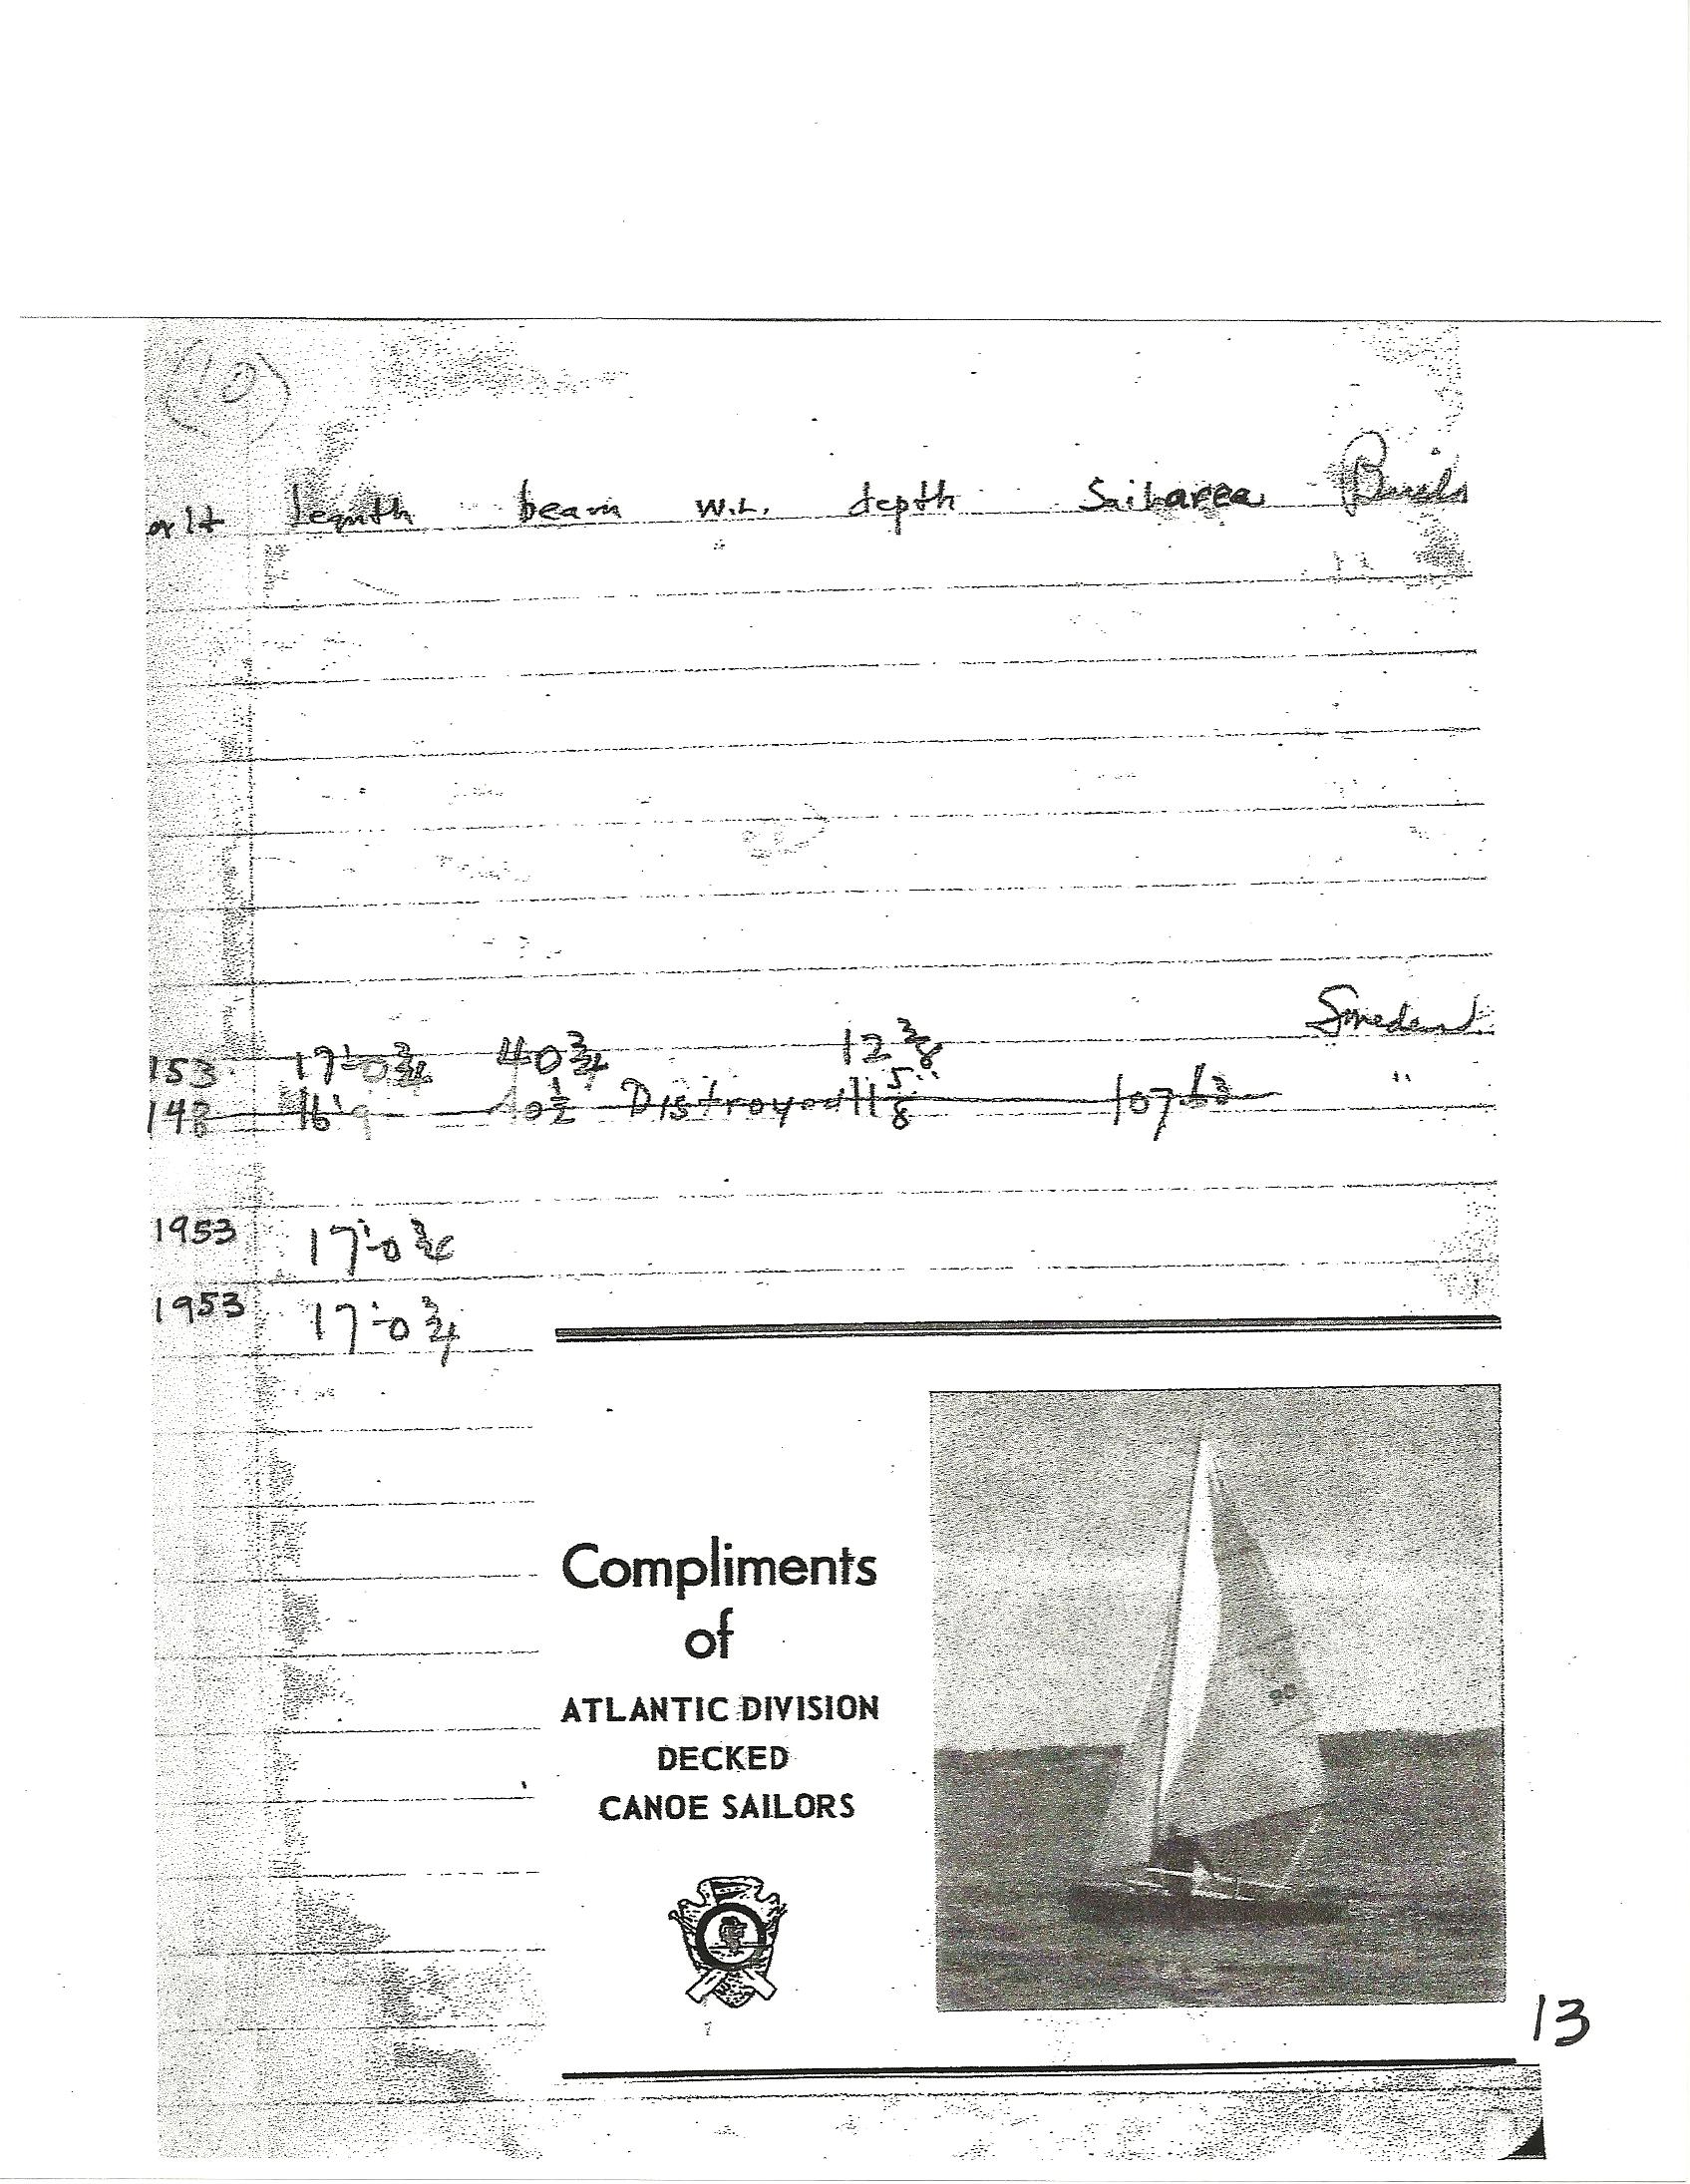 (10)
legnth beam W.L. depth Sailarea
Smeden
153 17'-0 3/4 40 3/4 12 3/8
148 16'9 40 1/2 Distroyed 11 5/8" 107 "
1953 17'-0 3/4
1953 17'-0 3/4
Compliments
of
ATLANTIC DIVISION
DECKED
CANOE SAILORS
13